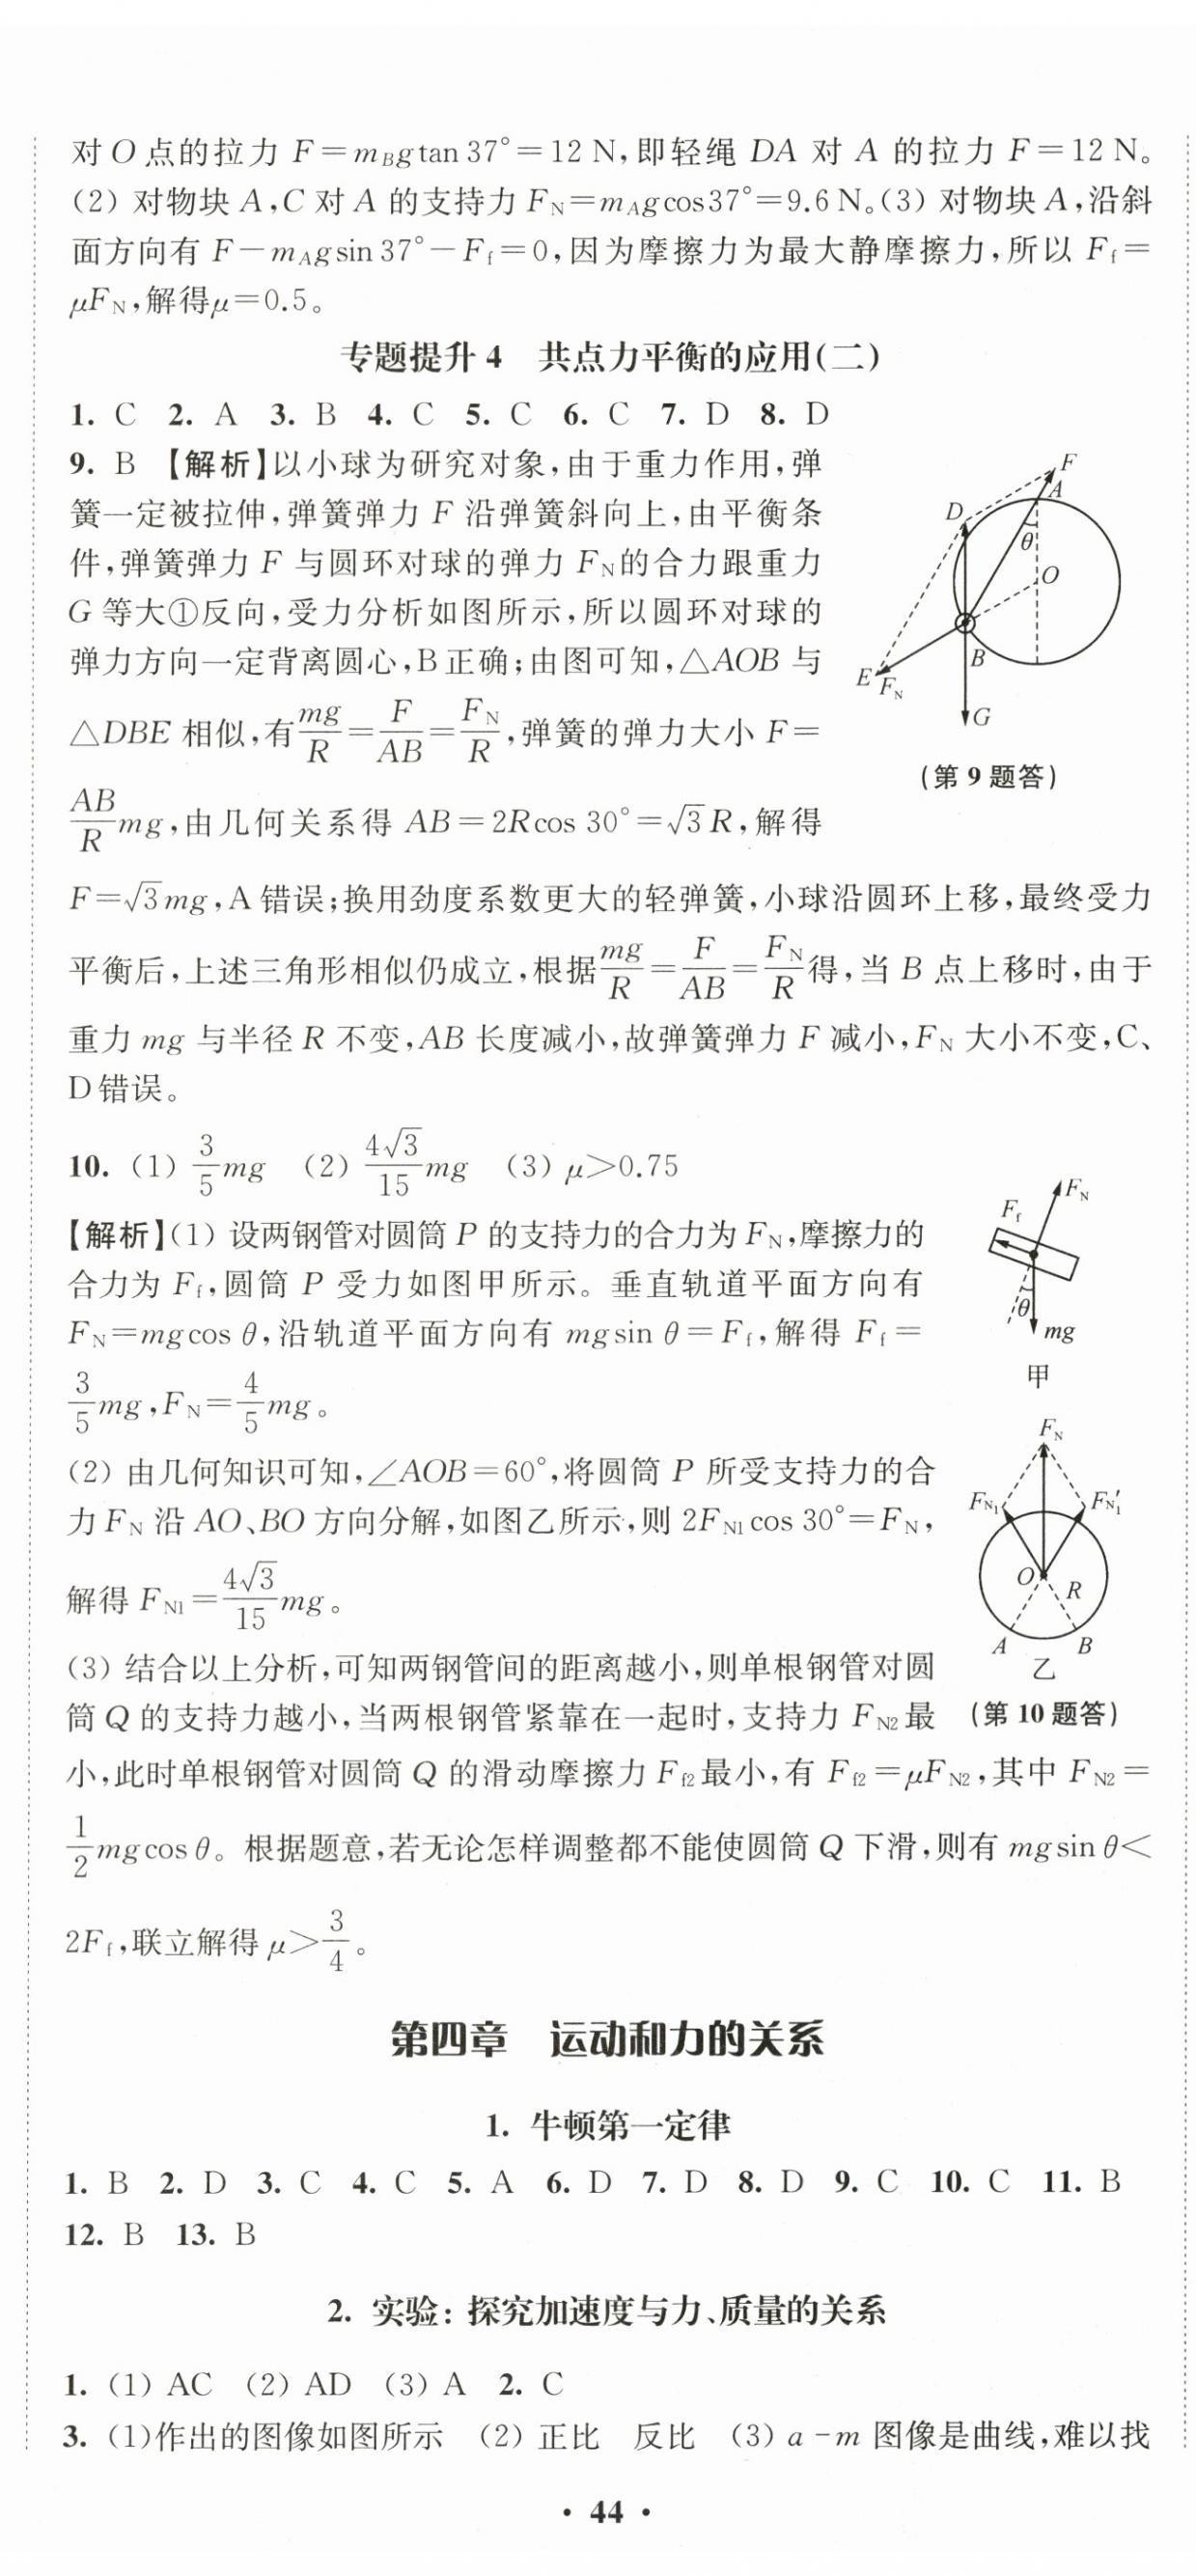 对 O 点的拉力 F=m_Bgtan 37°=12 N,即轻绳 DA 对 A 的拉力 F=12 N。
(2) 对物块 A,C 对 A 的支持力 F_N=m_Agcos37°=9.6 N。(3) 对物块 A,沿斜
面方向有 F-m_Agsin 37°-F_f=0,因为摩擦力为最大静摩擦力,所以 F_f=
μF_N,解得μ=0.5。
专题提升4 共点力平衡的应用(二)
1. C 2. A 3. B 4. C 5. C 6. C 7. D 8. D
9. B 【解析】以小球为研究对象,由于重力作用,弹
簧一定被拉伸,弹簧弹力 F 沿弹簧斜向上,由平衡条
件,弹簧弹力 F 与圆环对球的弹力 F_N的合力跟重力
G 等大①反向,受力分析如图所示,所以圆环对球的
弹力方向一定背离圆心,B正确;由图可知,△AOB 与
△DBE 相似,有mg/R=F/AB=F_N/R,弹簧的弹力大小 F=
AB/R mg,由几何关系得 AB=2Rcos 30°=√3R,解得
F
A
D
θ
O
B
E F_N
G
(第 9 题答)
F=√3mg,A 错误;换用劲度系数更大的轻弹簧,小球沿圆环上移,最终受力
平衡后,上述三角形相似仍成立,根据mg/R=F/AB=F_N/R得,当 B 点上移时,由于
重力 mg 与半径 R 不变,AB 长度减小,故弹簧弹力 F 减小,F_N 大小不变,C、
D错误。
10. (1) 3/5 mg (2) 4√3/15 mg (3) μ>0.75
【解析】(1) 设两钢管对圆筒 P 的支持力的合力为 F_N,摩擦力的
合力为 F_f,圆筒 P 受力如图甲所示。垂直轨道平面方向有
F_N=mgcos θ,沿轨道平面方向有 mgsin θ=F_f,解得 F_f=
3/5 mg,F_N=4/5 mg。
(2) 由几何知识可知,∠AOB=60°,将圆筒 P 所受支持力的合
力 F_N 沿 AO、BO 方向分解,如图乙所示,则 2F_N1 cos 30°=F_N,
解得 F_N1=4√3/15 mg。
(3) 结合以上分析,可知两钢管间的距离越小,则单根钢管对圆
筒 Q 的支持力越小,当两根钢管紧靠在一起时,支持力 F_N2最
F_N
F_f
θ
mg
甲
F_N
F_N1 F_N1′
O R
A B
乙
(第 10 题答)
小,此时单根钢管对圆筒 Q 的滑动摩擦力 F_f2最小,有 F_f2=μF_N2,其中 F_N2=
1/2 mgcos θ。根据题意,若无论怎样调整都不能使圆筒 Q 下滑,则有 mgsin θ<
2F_f,联立解得 μ>3/4。
第四章 运动和力的关系
1. 牛顿第一定律
1. B 2. D 3. C 4. C 5. A 6. D 7. D 8. D 9. C 10. C 11. B
12. B 13. B
2. 实验:探究加速度与力、质量的关系
1. (1) AC (2) AD (3) A 2. C
3. (1)作出的图像如图所示 (2) 正比 反比 (3) a-m 图像是曲线,难以找
• 44 •